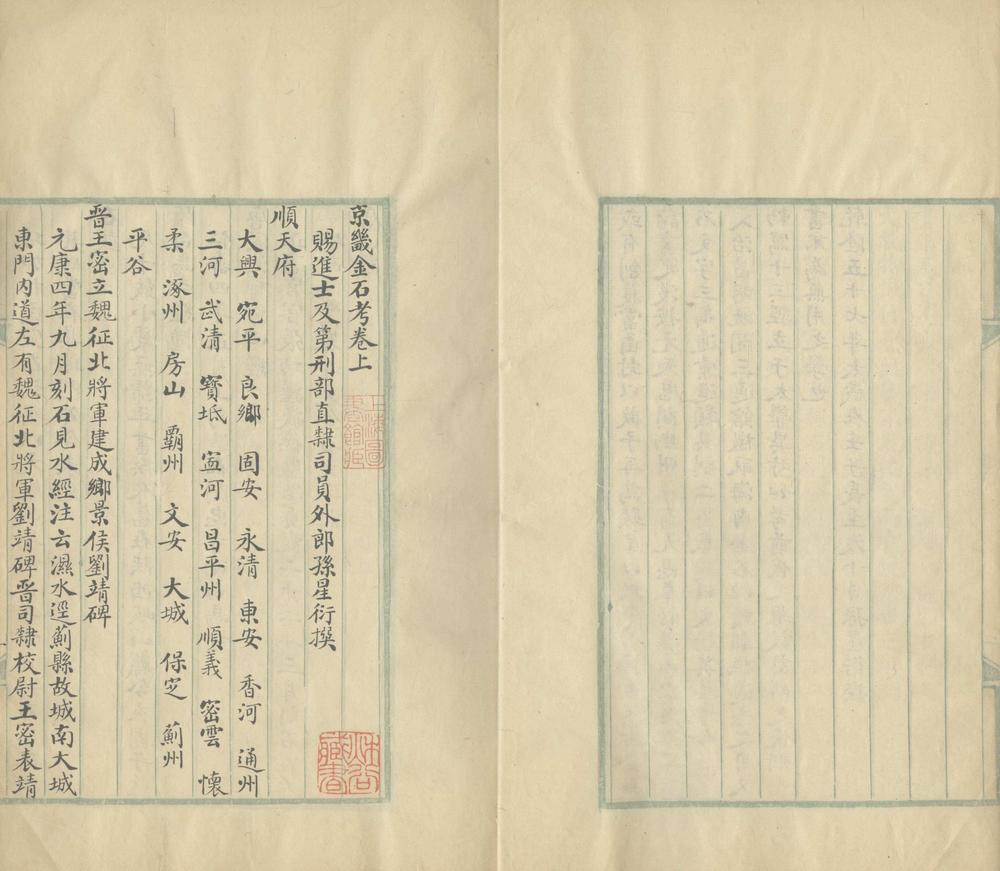 京畿金石考卷上
賜進士及第刑部直隸司員外郎孫星衍撰
順天府
大興 宛平 良鄉 固安 永清 東安 香河 通州
三河 武清 寶坻 寍河 昌平州 順義 密雲 懷
柔 涿州 房山 霸州 文安 大城 保定 薊州
平谷
晉王密立魏征北將軍建成鄉景侯劉靖碑
元康四年九月刻石見水經注云濕水逕薊縣故城南大城
東門內道左有魏征北將軍劉靖碑晉司隸校尉王密表靖
上海圖書館藏